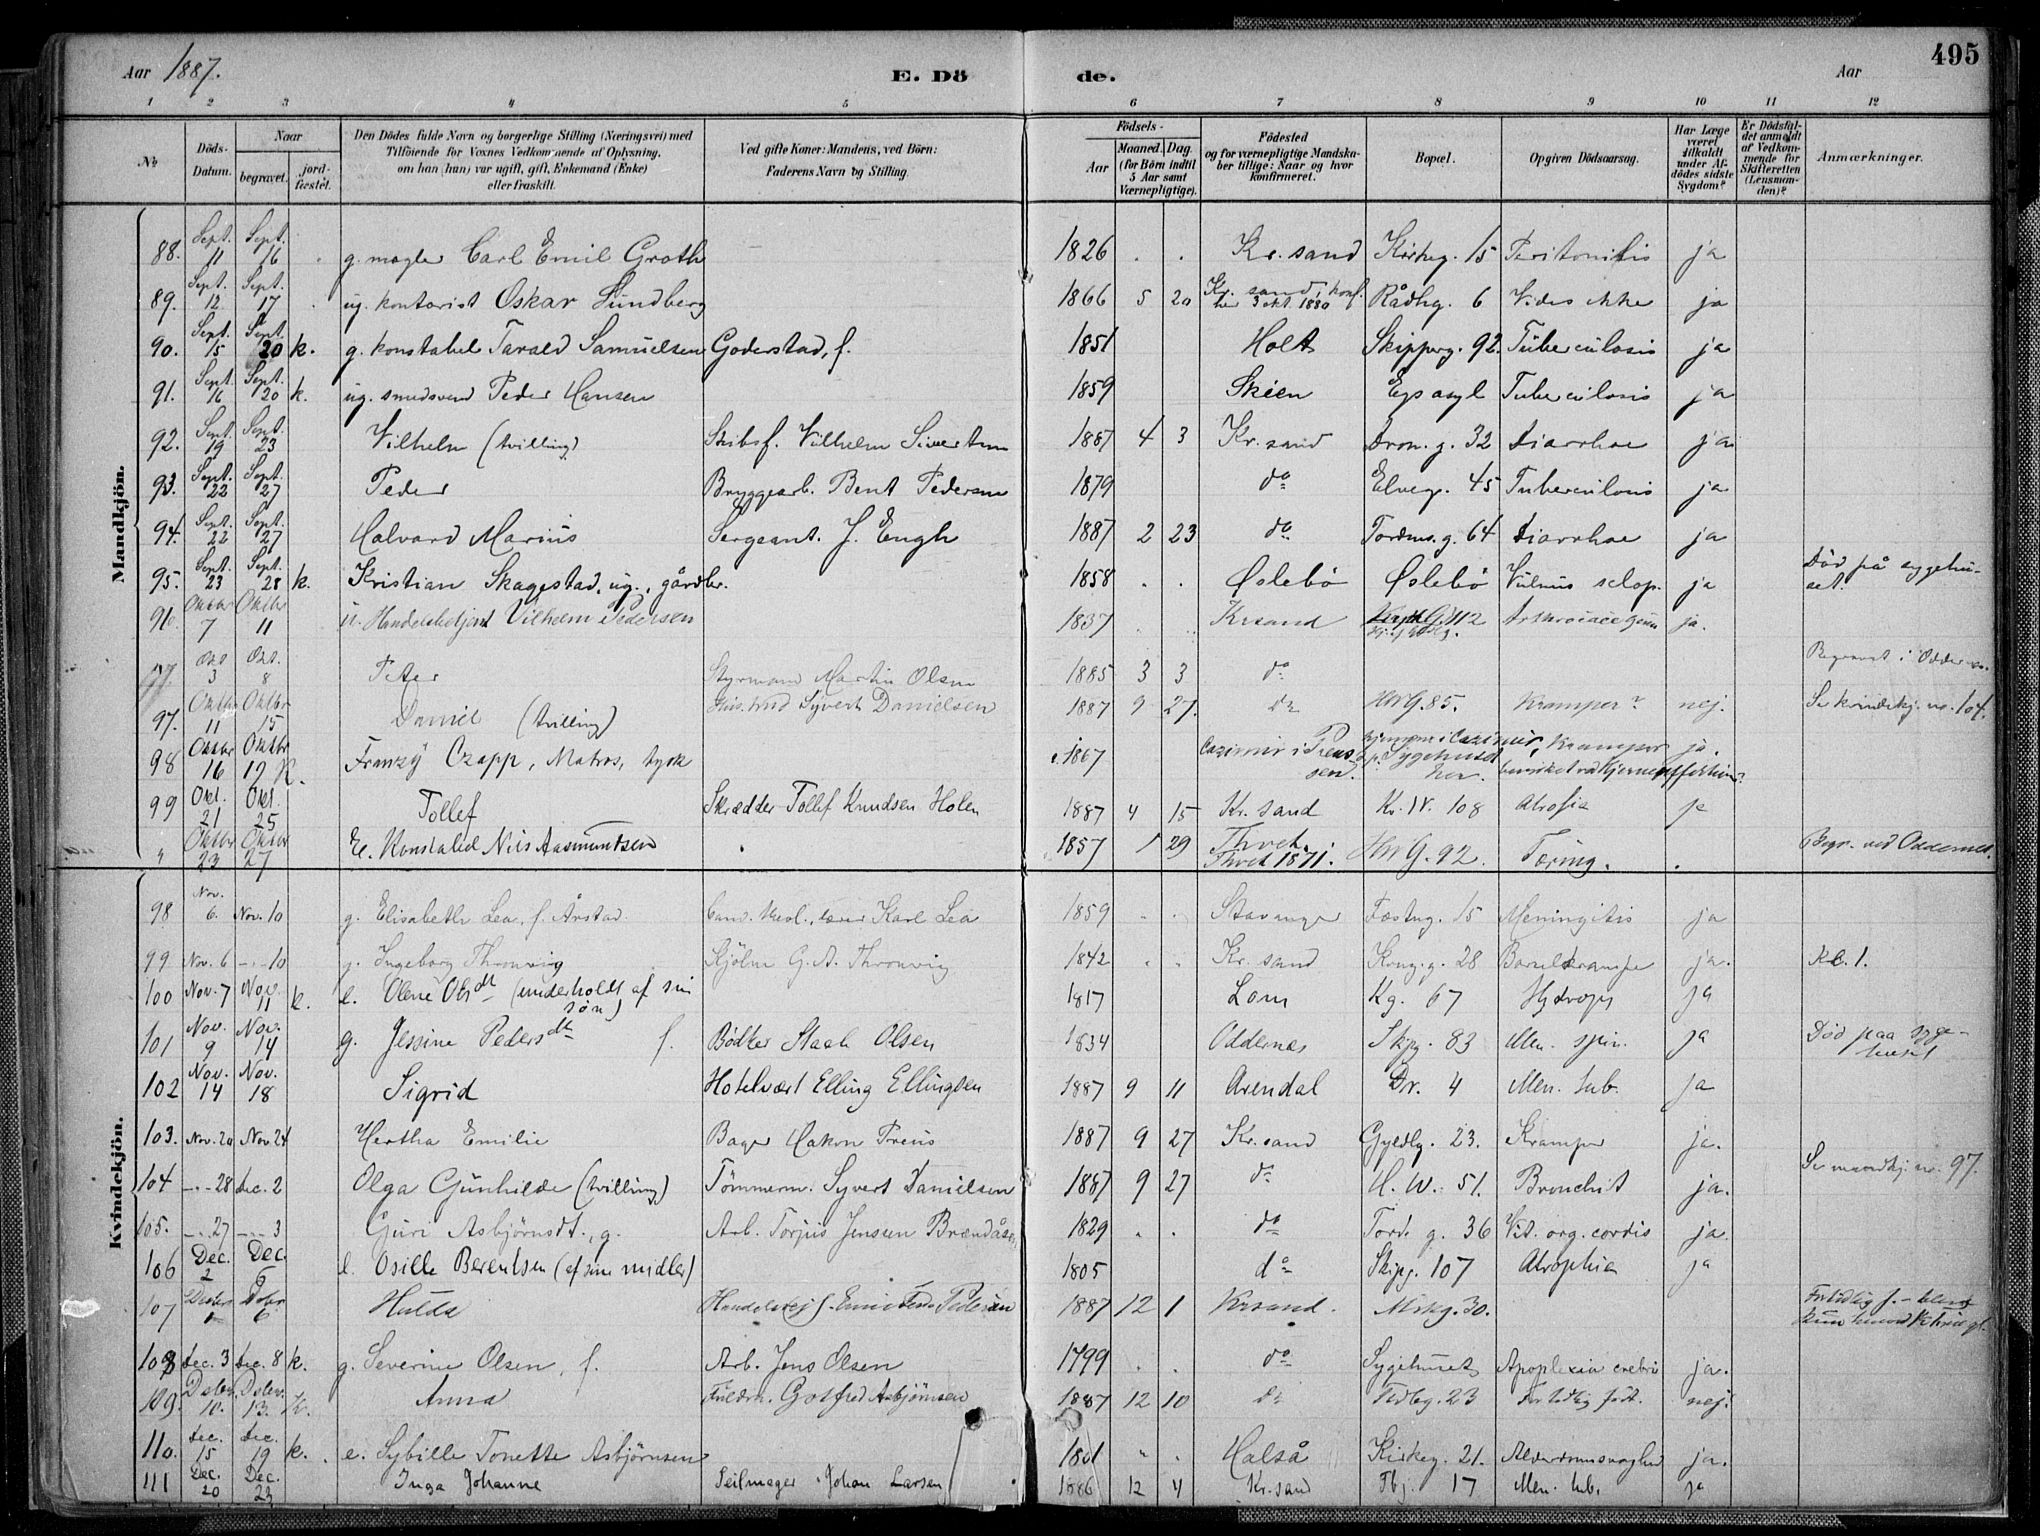 495
Aar 1887. E. Dö de. Aar
1 2 3 4 5 6 7 8 9 10 11 12
No Döds-Datum. Naar begravet. jordfæstet. Den Dödes fulde Navn og borgerlige Stilling (Næringsvei) med Tilföiende for Voxnes Vedkommende af Oplysning, om han (hun) var ugift, gift, Enkemand (Enke) eller fraskilt. Ved gifte Koner: Mandens, ved Börn: Faderens Navn og Stilling. Födsels- Aar Maaned. Dag. (for Börn indtil 5 Aar samt Værnepligtige). Födested og for værnepligtige Mandskaber tillige: Naar og hvor konfirmeret. Bopæl. Opgiven Dödsaarsag. Har Læge været tilkaldt under Afdödes sidste Sygdom? Er Dödsfaldet anmeldt af Vedkommende for Skifteretten (Lensmanden)? Anmærkninger.
Mandkjön.
88. Sept. 11 Sept. 16 g. mægler Carl Emil Groth 1826 . . Kr.sand Kirkeg. 15 Peritonitis ja
89. Sept. 12 Sept. 17 ug. kontorist Oskar Lundberg 1866 5 20 Kr. sand, konf. her 3 okt. 1880 Rådhg. 6 Vides ikke ja
90. Sept. 15 Sept. 20 k. g. konstabel Tarald Samuelsen Goderstad, f. 1851 Holt Skipperg. 92. Tuberculosis ja
91. Sept. 16 Sept. 20 k. ug. smedsvend Peder Hansen 1859 Skien Egs asyl Tuberculosis ja
92. Sept. 19 Sept. 23 Vilhelm (tvilling) Skibsf. Vilhelm Sivertsen 1887 4 3 Kr. sand Dron. g. 32 Diarrhoe ja
93. Sept. 22 Sept. 27 Peder Bryggearb. Bent Pedersen 1879 do Elveg. 45 Tuberculosis ja
94. Sept. 22 Sept. 27 Halvard Marius Sergeant. J. Engh 1887 2 23 do Tordens.g. 64 Diarrhoe ja
95. Sept. 23 Sept. 28 k. Kristian Skagestad, ug., gårdbr. 1858 . . Øslebø Øslebø Vulnus sclop. ja Død på sygehuset.
96. Oktbr 7 Oktbr 11 u. Handelsbetjent Vilhelm Pedersen 1837 Krsand ja.
Okt 3 Okt. 8 Peter Styrmand Martin Olsen 1885 3 3 do Begravet i Oddernes.
97. Oktbr 11 Oktbr 15 Daniel (tvilling) Syvert Danielsen 1887 9 27. do HWG. 85. Kramper? nej. Se kvindekj. no. 104.
98 Oktbr 16 Oktbr 19 K. Franz Czapp, Matros, tysk 1867 Cazimir i Preussen. hjemme i Cazimir, Sygehuset her. Kramper ja.
99 Okt. 21 Okt. 25 Tollef Skrædder Tollef Knudsen Holen 1887 4 15 Kr. sand Kr. IV. 108 Atrofia ja
" Oktbr 23 Oktbr 27 E. Konstabel Nils Aasmundsen 1857 1 29 Thvet. Thvet 1871. HWG. 92. Tæring. . Begr. ved Oddernes.
Kvindekjön.
98. Nov. 6. Nov. 10 g. Elisabeth Lea, f. Årstad. Cand. theol., lærer Karl Lea 1859 . . Stavanger Fæstng. 15 Meningitis ja
99 Nov. 6 -..- 10 g. Ingeborg Thronvig G. A. Thronvig 1842 . . Kr. sand Kong. g. 28 Barselkrampe ja. Kl. 1.
100 Nov. 7 Nov. 11 k. e. Olene Olsdt (underholdt af sin søn) 1817 Lom Kg. 67 Hydrops ja
101 Nov. 9 Nov. 14 g. Jessine Pedersdt f. Bødker Staale Olsen 1834 Oddernes Skpg. 83 Men. spin. ja Død paa sygehuset
102 Nov. 14 Nov. 18 Sigrid Hotelvært Elling Ellingsen 1887 9 11 Arendal Dr. 4 Men. tub. ja
103. Nov. 20 Nov 24 Hertha Emilie Bager Hakon Preus 1887 9 27 Kr. sand Gyldlg. 23. Kramper ja.
104 -..- 28 Dec. 2 Olga Gunhilde (tvilling) Tømmerm. Syvert Danielsen 1887 9 27 do H. W. 51. Bronchit ja. Se mandkj. no. 97.
105. -..- 27 -..- 3 Guri Asbjørnsdt., g. Arb. Torjus Jenssen 1829 . . do Tord. g. 36 Vit. org. cordis ja
106 Dec. 2 Dec. 6 e. Osille Berentsen (af sine midler) 1805 do Skipg. 107 Atrophia ja
107 Hulda 1887 12 1 Krsand. Mrkg. 30.
108 Dec. 3 Dec. 8 k. g. Severine Olsen, f. Arb. Jens Olsen 1799 . . do Sygehuset Apoplexia cerebri ja.
109. Dcbr. 10. Dcbr. 13. K. Anna Gotfred Asbjørnsen 1887 12 10 do 23 For tidlig født. nej.
110. Dec. 15 Dec. 19 k. e. Sybille Tonette Asbjørnsen 1801 " . Halså Kirkeg. 21. Alderdomssvaghed ja.
111 Dec. 20 Dec. 23 Inga Johanne Seilmager Johan Larsen 1886 12 4 Kr. sand Tbj. 17 Men. tub. ja